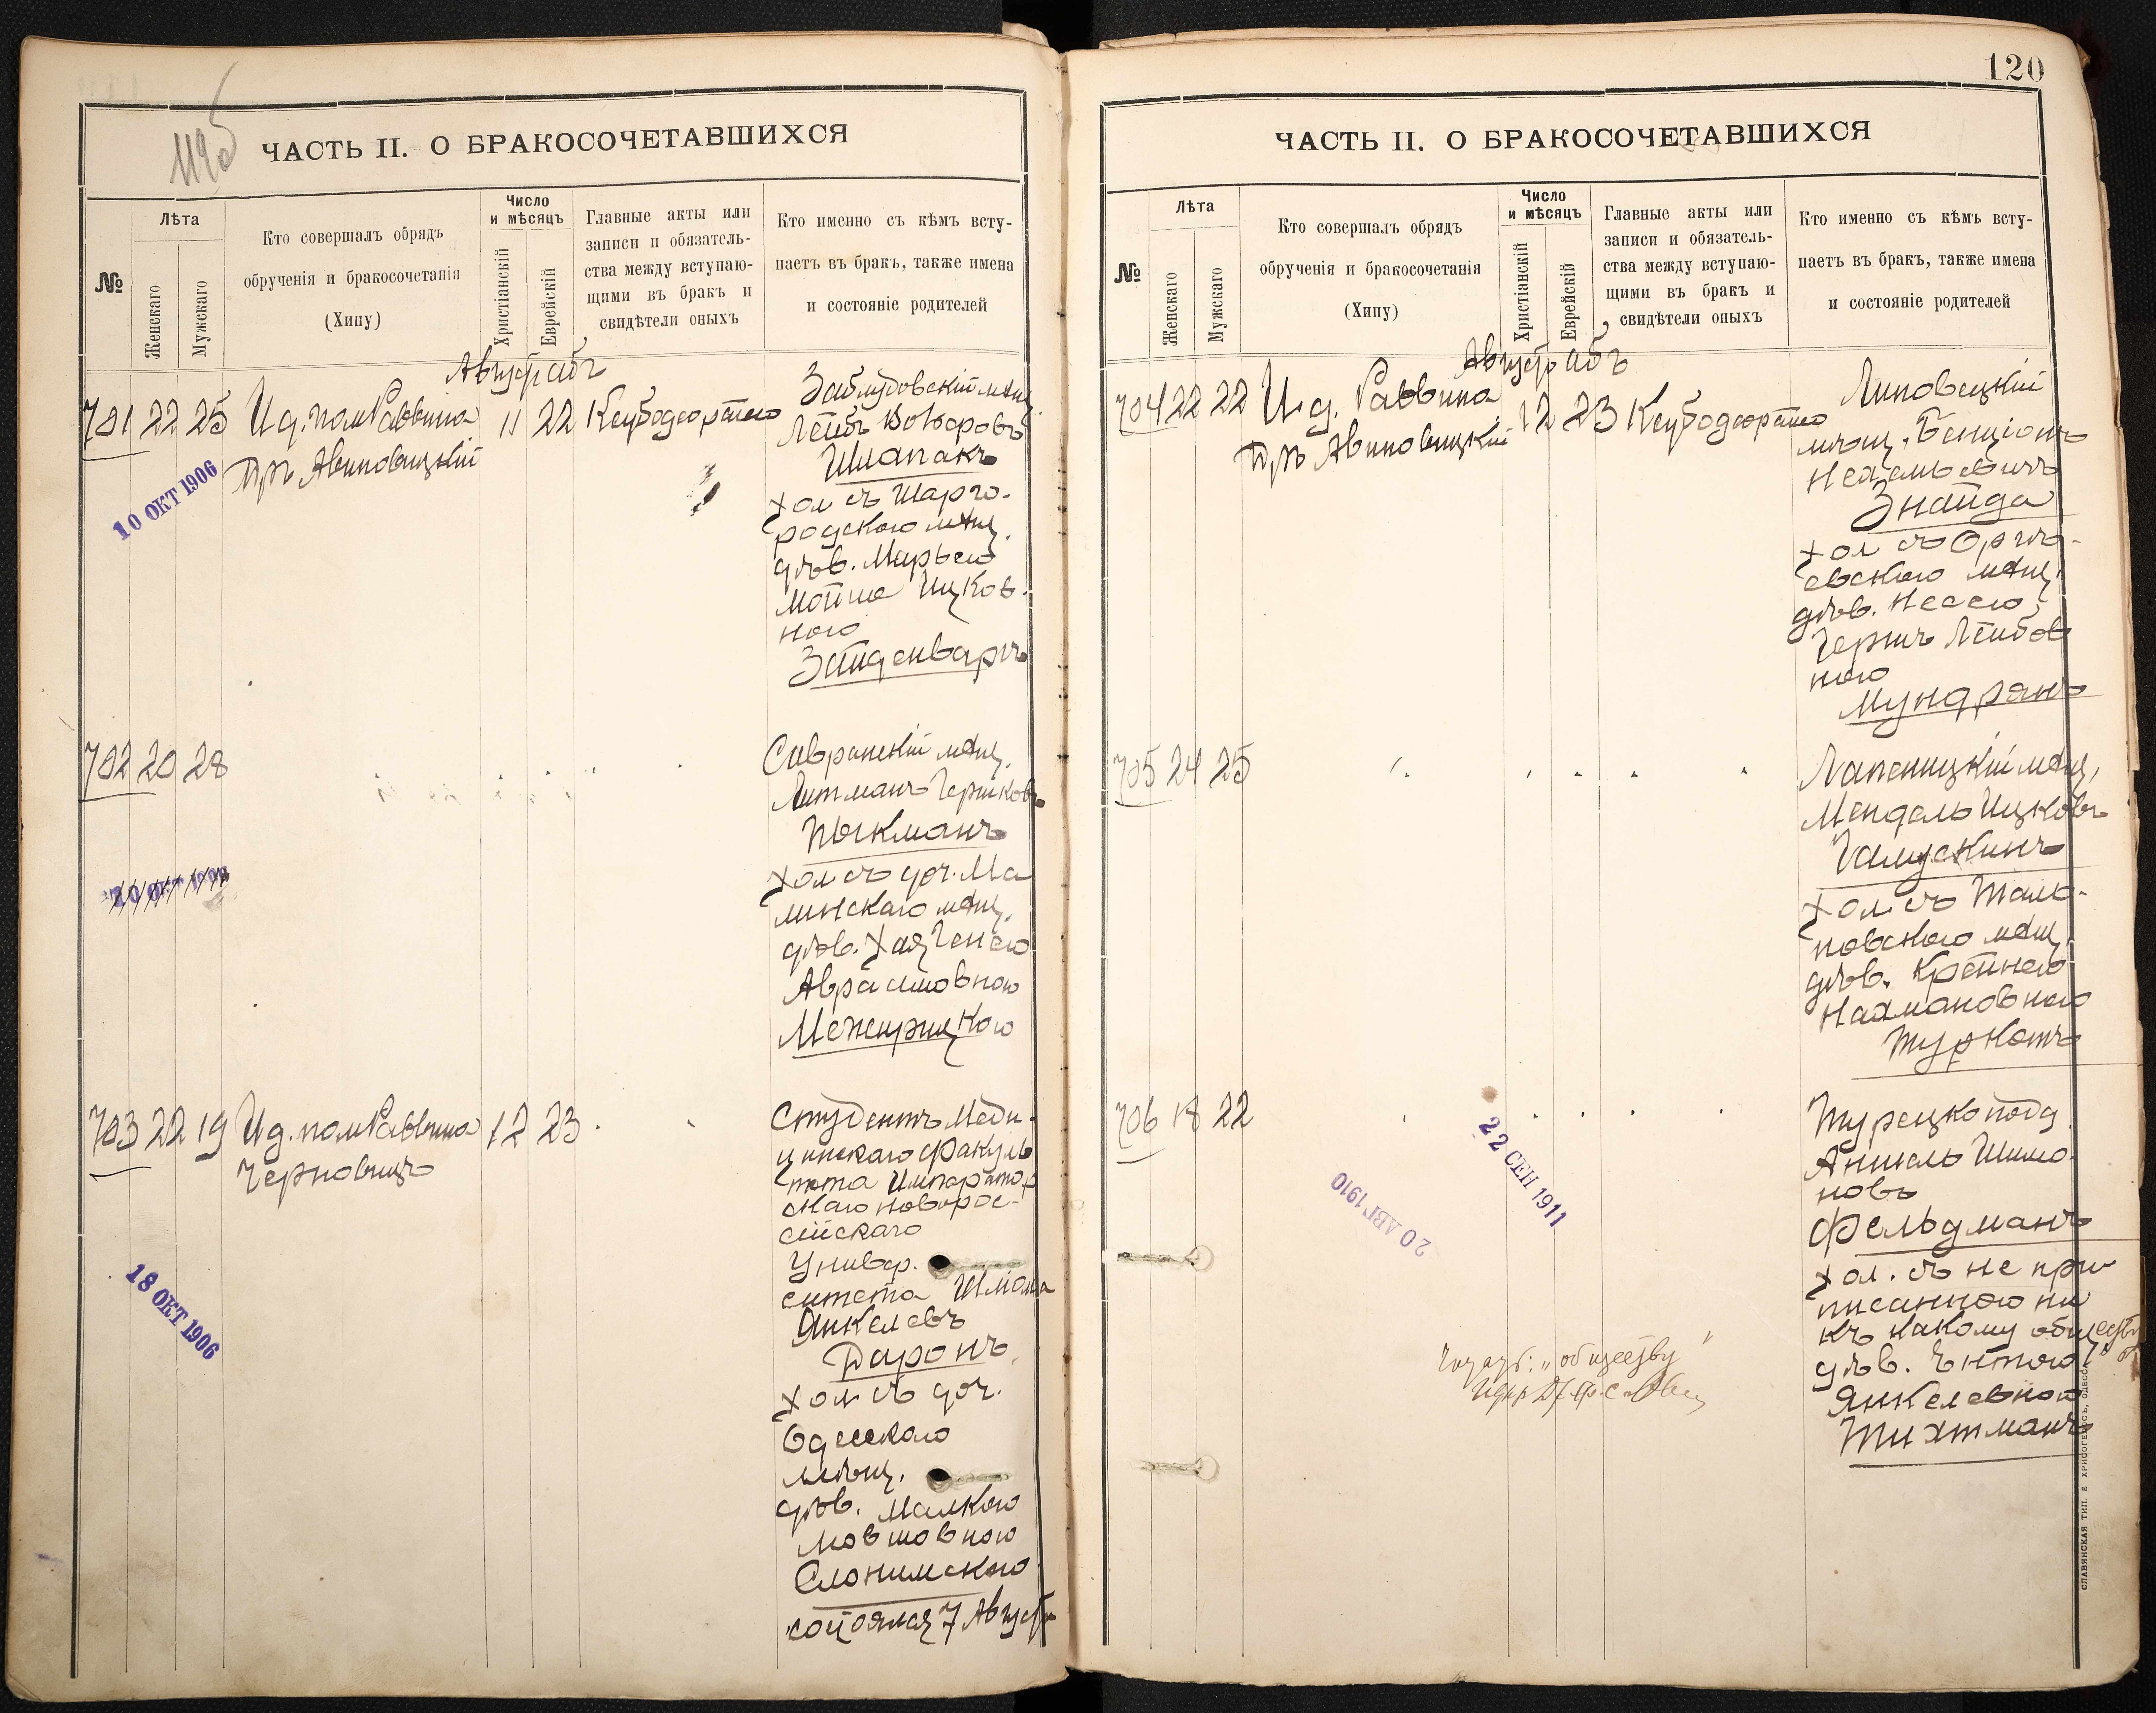 119об
ЧАСТЬ II. О БРАКОСОЧЕТАВШИХСЯ
№
Лѣта
Женскаго
Мужскаго
Кто совершалъ обрядъ
обрученія и бракосочетанія
(Хипу)
Число
и мѣсяцъ
Христіанскій
Еврейскій
Главные акты или
записи и обязатель-
ства между вступаю-
щими въ бракъ и
свидѣтели оныхъ
Кто именно съ кѣмъ всту-
паетъ въ бракъ, также имена
и состояніе родителей
Августъ Абъ
701 22 25 И д. пом Раввина 11 22
Д-ръ Авиновицкій
10 ОКТ 1906
Заблудовскій мѣщ.
Лейбъ
Шпапакъ
хол съ Шарго-
родскою мѣщ.
дѣв. Марьею
Мойше Ицков-
ною
Зайденваргъ
702 20 28
20 ОКТ 1906
Савранскій мѣщ.
Литманъ Гершковъ
Пыкманъ
хол съ доч. Ма
линскаго мѣщ.
дѣв. Хая Генею
Аврамовною
Межирицкою
703 22 19 И д. пом Раввина 12 23
Черновицъ
18 ОКТ 1906
Студентъ Меди-
цинскаго Факуль
тета Император
скаго Новорос-
сійскаго
Универ.
ситета Шлома
Янкелевъ
Даронъ
хол съ доч.
Одесскаго
мѣщ.
дѣв. Малкою
Мовшовною
Слонимскою
состоялся 7 Августа
120
ЧАСТЬ II. О БРАКОСОЧЕТАВШИХСЯ
№
Лѣта
Женскаго
Мужскаго
Кто совершалъ обрядъ
обрученія и бракосочетанія
(Хипу)
Число
и мѣсяцъ
Христіанскій
Еврейскій
Главные акты или
записи и обязатель-
ства между вступаю-
щими въ бракъ и
свидѣтели оныхъ
Кто именно съ кѣмъ всту-
паетъ въ бракъ, также имена
и состояніе родителей
Августъ Абъ
704 22 22 И. д. Раввина 12 23
Д-ръ Авиновицкій
Липовецкій
мѣщ. Бенціонъ
Знайда
хол съ Оргѣ-
евскою мѣщ.
дѣв. Несею
Герши Лейбов
ною
Мундрянъ
705 24 25
мѣщ.
Мендель Ицковъ
Галускинъ
хол съ Таль-
новскою мѣщ.
дѣв. Крейнею
Нахмановною
Туркотъ
706 18 22
22 СЕН 1911
20 АВГ 1910
Турецкоподд.
Аншель Шимо
новъ
Фельдманъ
хол. съ не при-
писанною ни
къ какому обществу
дѣв. Энтою
Янкелевною
Тихтманъ
"обществу"
СЛАВЯНСКАЯ ТИП. Е ХРИСОГЕЛОСЪ, ОДЕССА.